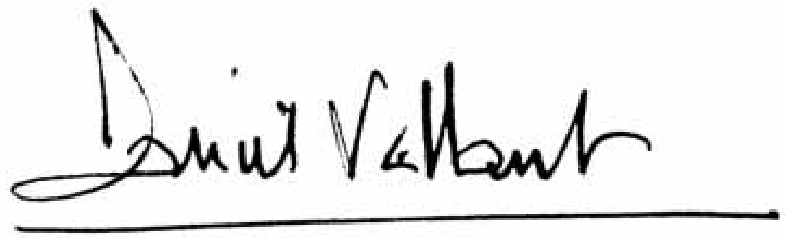 Daniel Vaillant